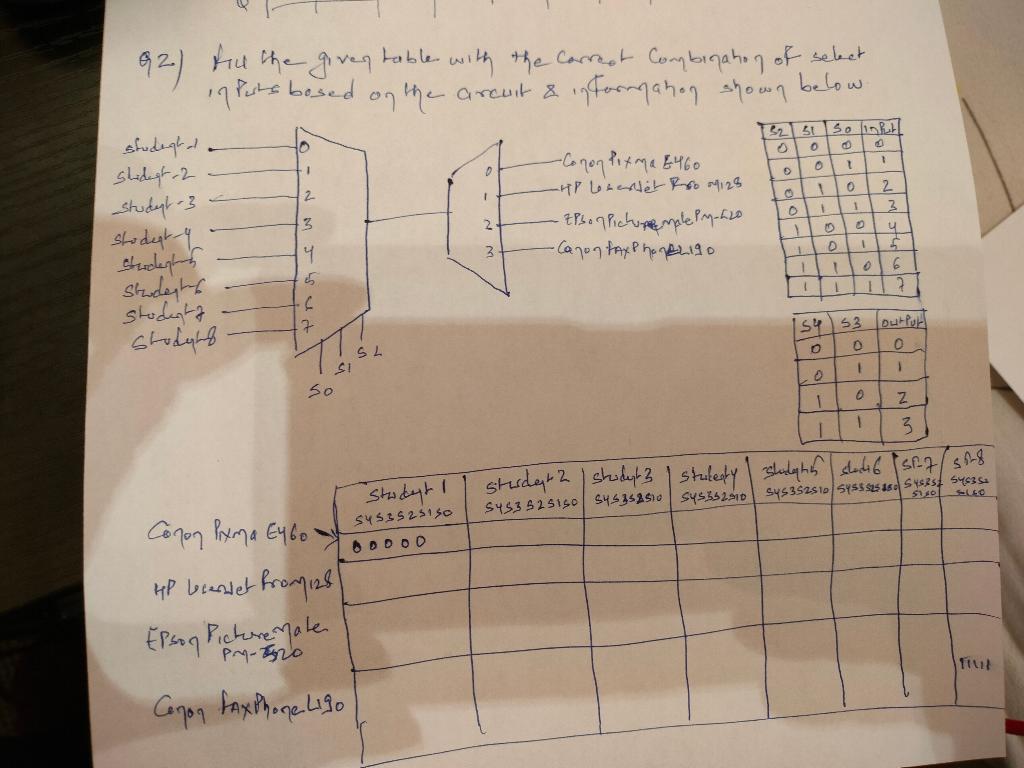 Q2) Fill the given table with the correct Combination of select
inputs based on the circuit & information shown below
student-1
student-2
student-3
student-4
student-5
student-6
student-7
student-8
0
1
2
3
4
5
6
7
S0
S1
S2
0
1
2
3
Canon Pixma E460
HP LaserJet Pro M128
EPson Picturemate Pm-520
Canon faxPhone L190
S2 S1 S0 input
0 0 0 0
0 0 1 1
0 1 0 2
0 1 1 3
1 0 0 4
1 0 1 5
1 1 0 6
1 1 1 7
S4 S3 output
0 0 0
0 1 1
1 0 2
1 1 3
student 1 student 2 student 3 student 4 student 5 stud 6 st-7 st-8
S4S3S2S1S0 S4S3S2S1S0 S4S3S2S1S0 S4S3S2S1S0 S4S3S2S1S0 S4S3S2S1S0 S4S3S2 S4S3S2
S1S0 S1S0
Canon Pixma E460 00000
HP LaserJet Pro M128
EPson Picturemate
Pm-520
11111
Canon fAxPhone L190